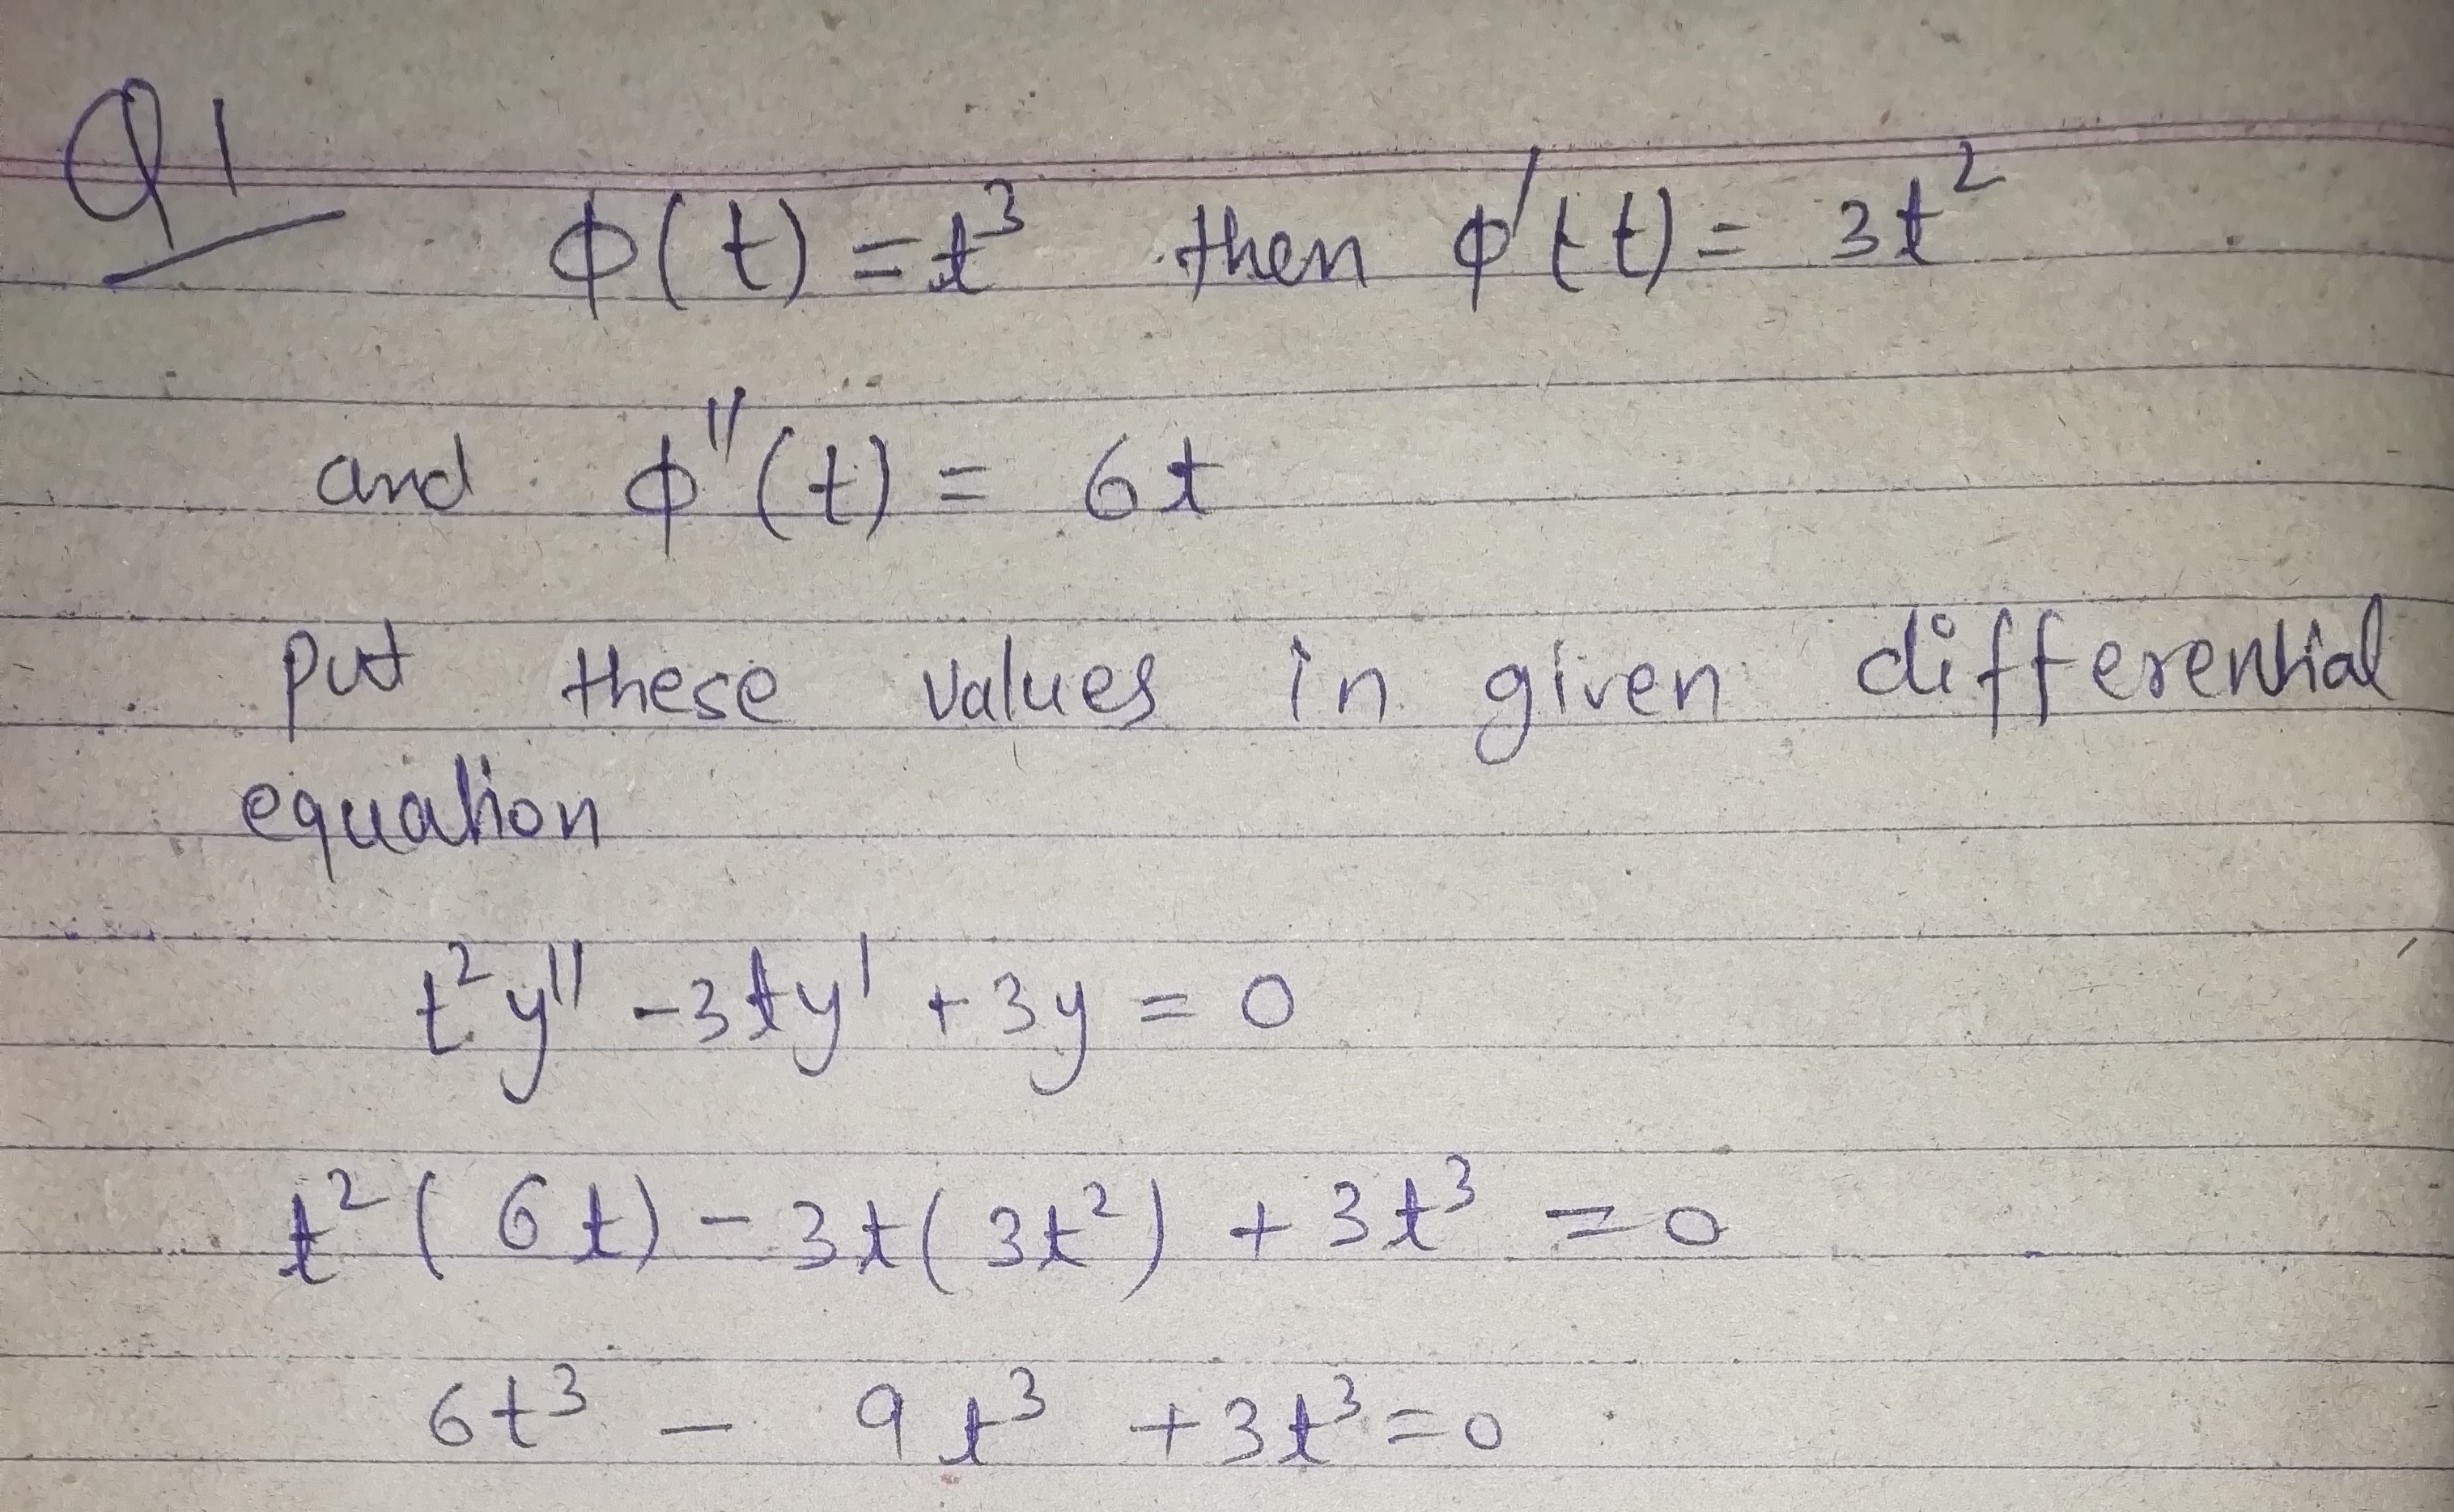 Q1
ϕ(t) = t³ then ϕ'(t) = 3t²
and ϕ''(t) = 6t
put these values in given differential
equation
t²y'' - 3ty' + 3y = 0
t²(6t) - 3t(3t²) + 3t³ = 0
6t³ - 9t³ + 3t³ = 0